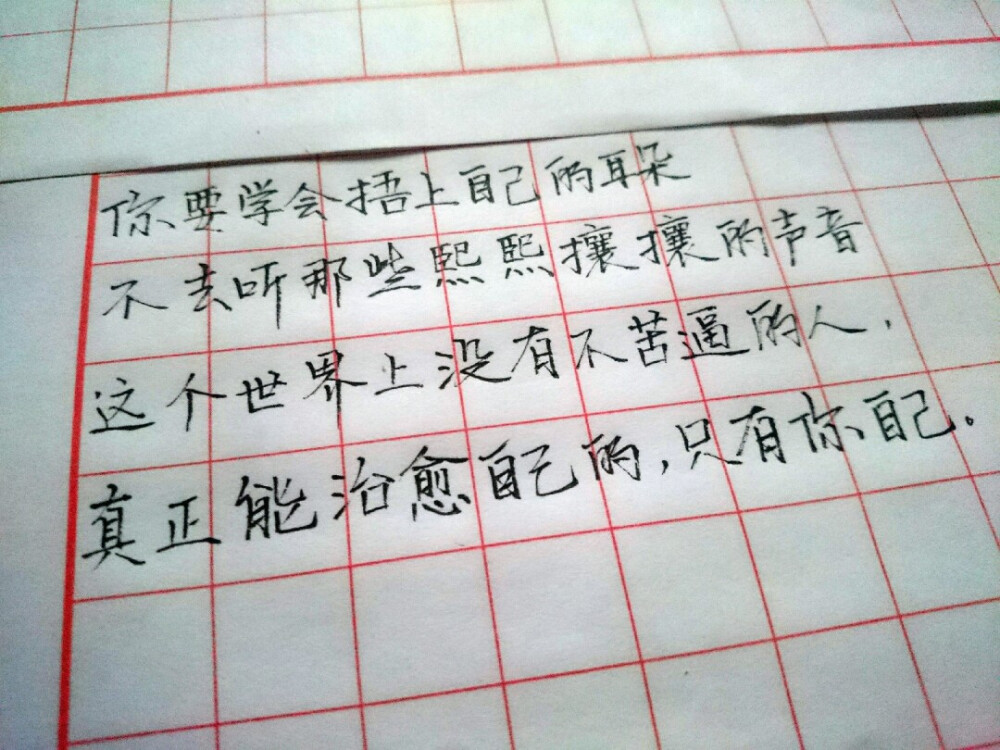 你要学会捂上自己的耳朵
不去听那些熙熙攘攘的声音
这个世界上没有不苦逼的人，
真正能治愈自己的，只有你自己。